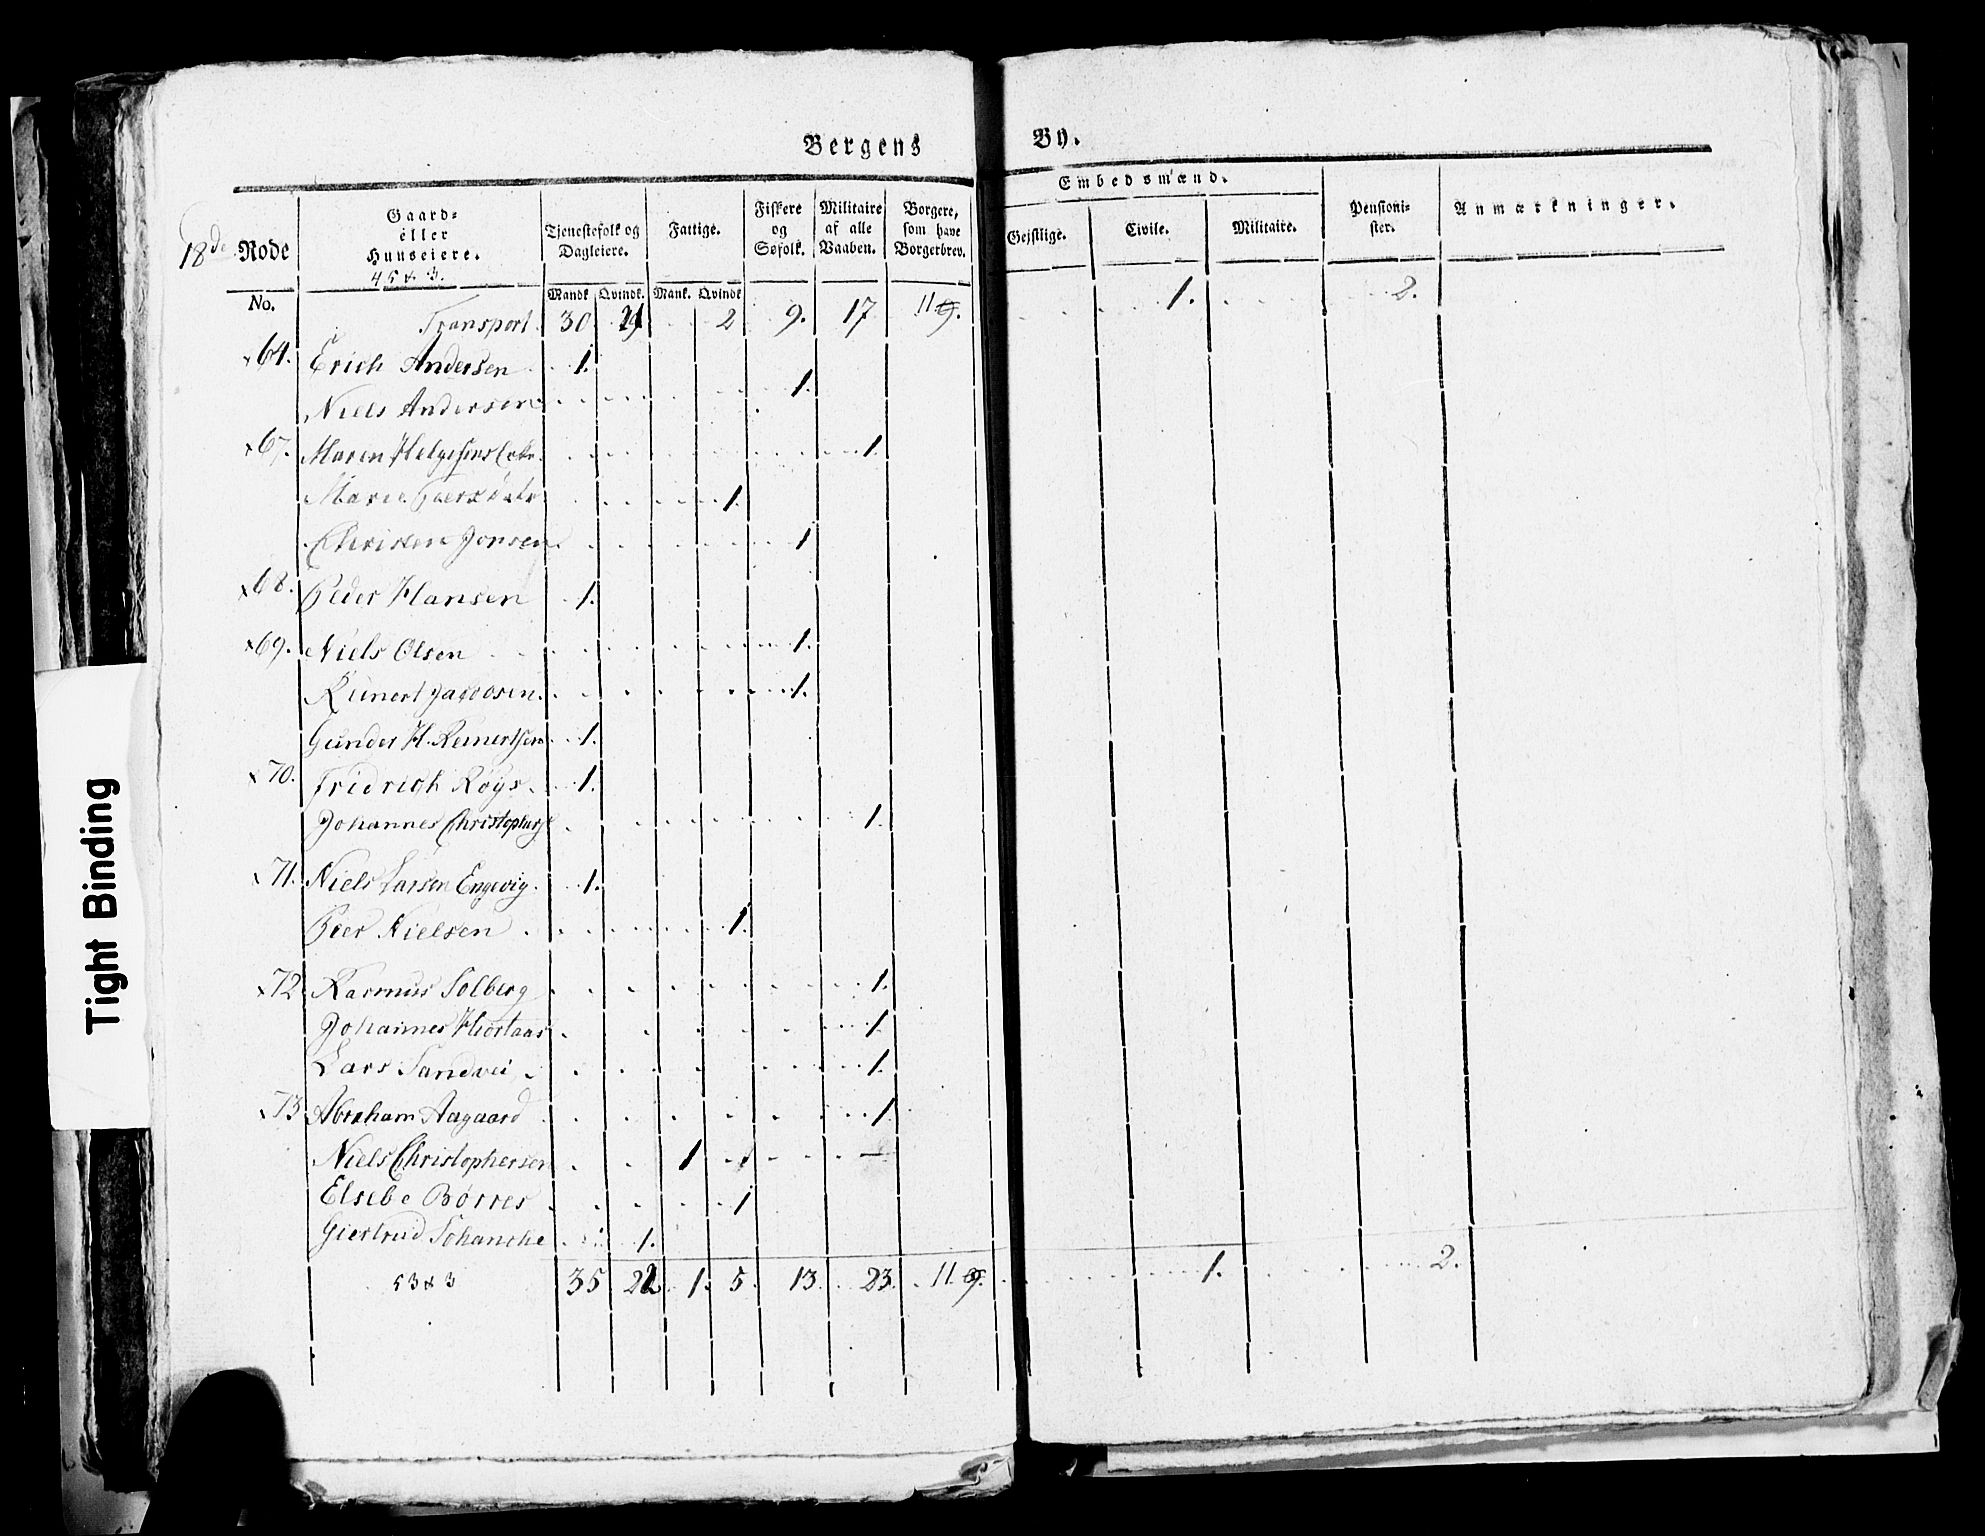 Bergens By.
18de Rode
Gaard-
eller
Huuseiere.
45 & 3.
Tjenestefolk og
Dagleiere.
Fattige.
Fiskere
og
Søfolk.
Militaire
af alle
Vaaben.
Borgere,
som have
Borgerbrev.
Embedsmænd.
Gejstlige.
Civile.
Militaire.
Pensioni-
ster.
Anmærkninger.
No.
Mandk Qvindk. Mank. Qvindk
Transport 30 2 9. 17 11 1. 2.
x64. Erich Andersen 1.
Niels Andersen 1.
x67. Maren Helgesens 1
Marie 1.
Christen Jonsen 1
x68. Peder Hansen 1.
x69. Niels Olsen 1.
Reinert Jacobsen 1.
Gunder H. Reinertsen 1.
x70. Fridrich Røys 1.
Johannes Christophers 1.
x71. Niels Larsen Engevig 1.
Peer Nielsen 1.
x72 Rasmus Solberg 1.
Johannes Hiortaas 1
Lars Sandvei 1.
x73 Abraham Aagaard 1
Niels Christophersen 1 1
Elsebe Børres 1
Giertrud Schanche 1.
53 & 3 35 22 1. 5. 13. 23. 11. 1. 2.
Tight Binding